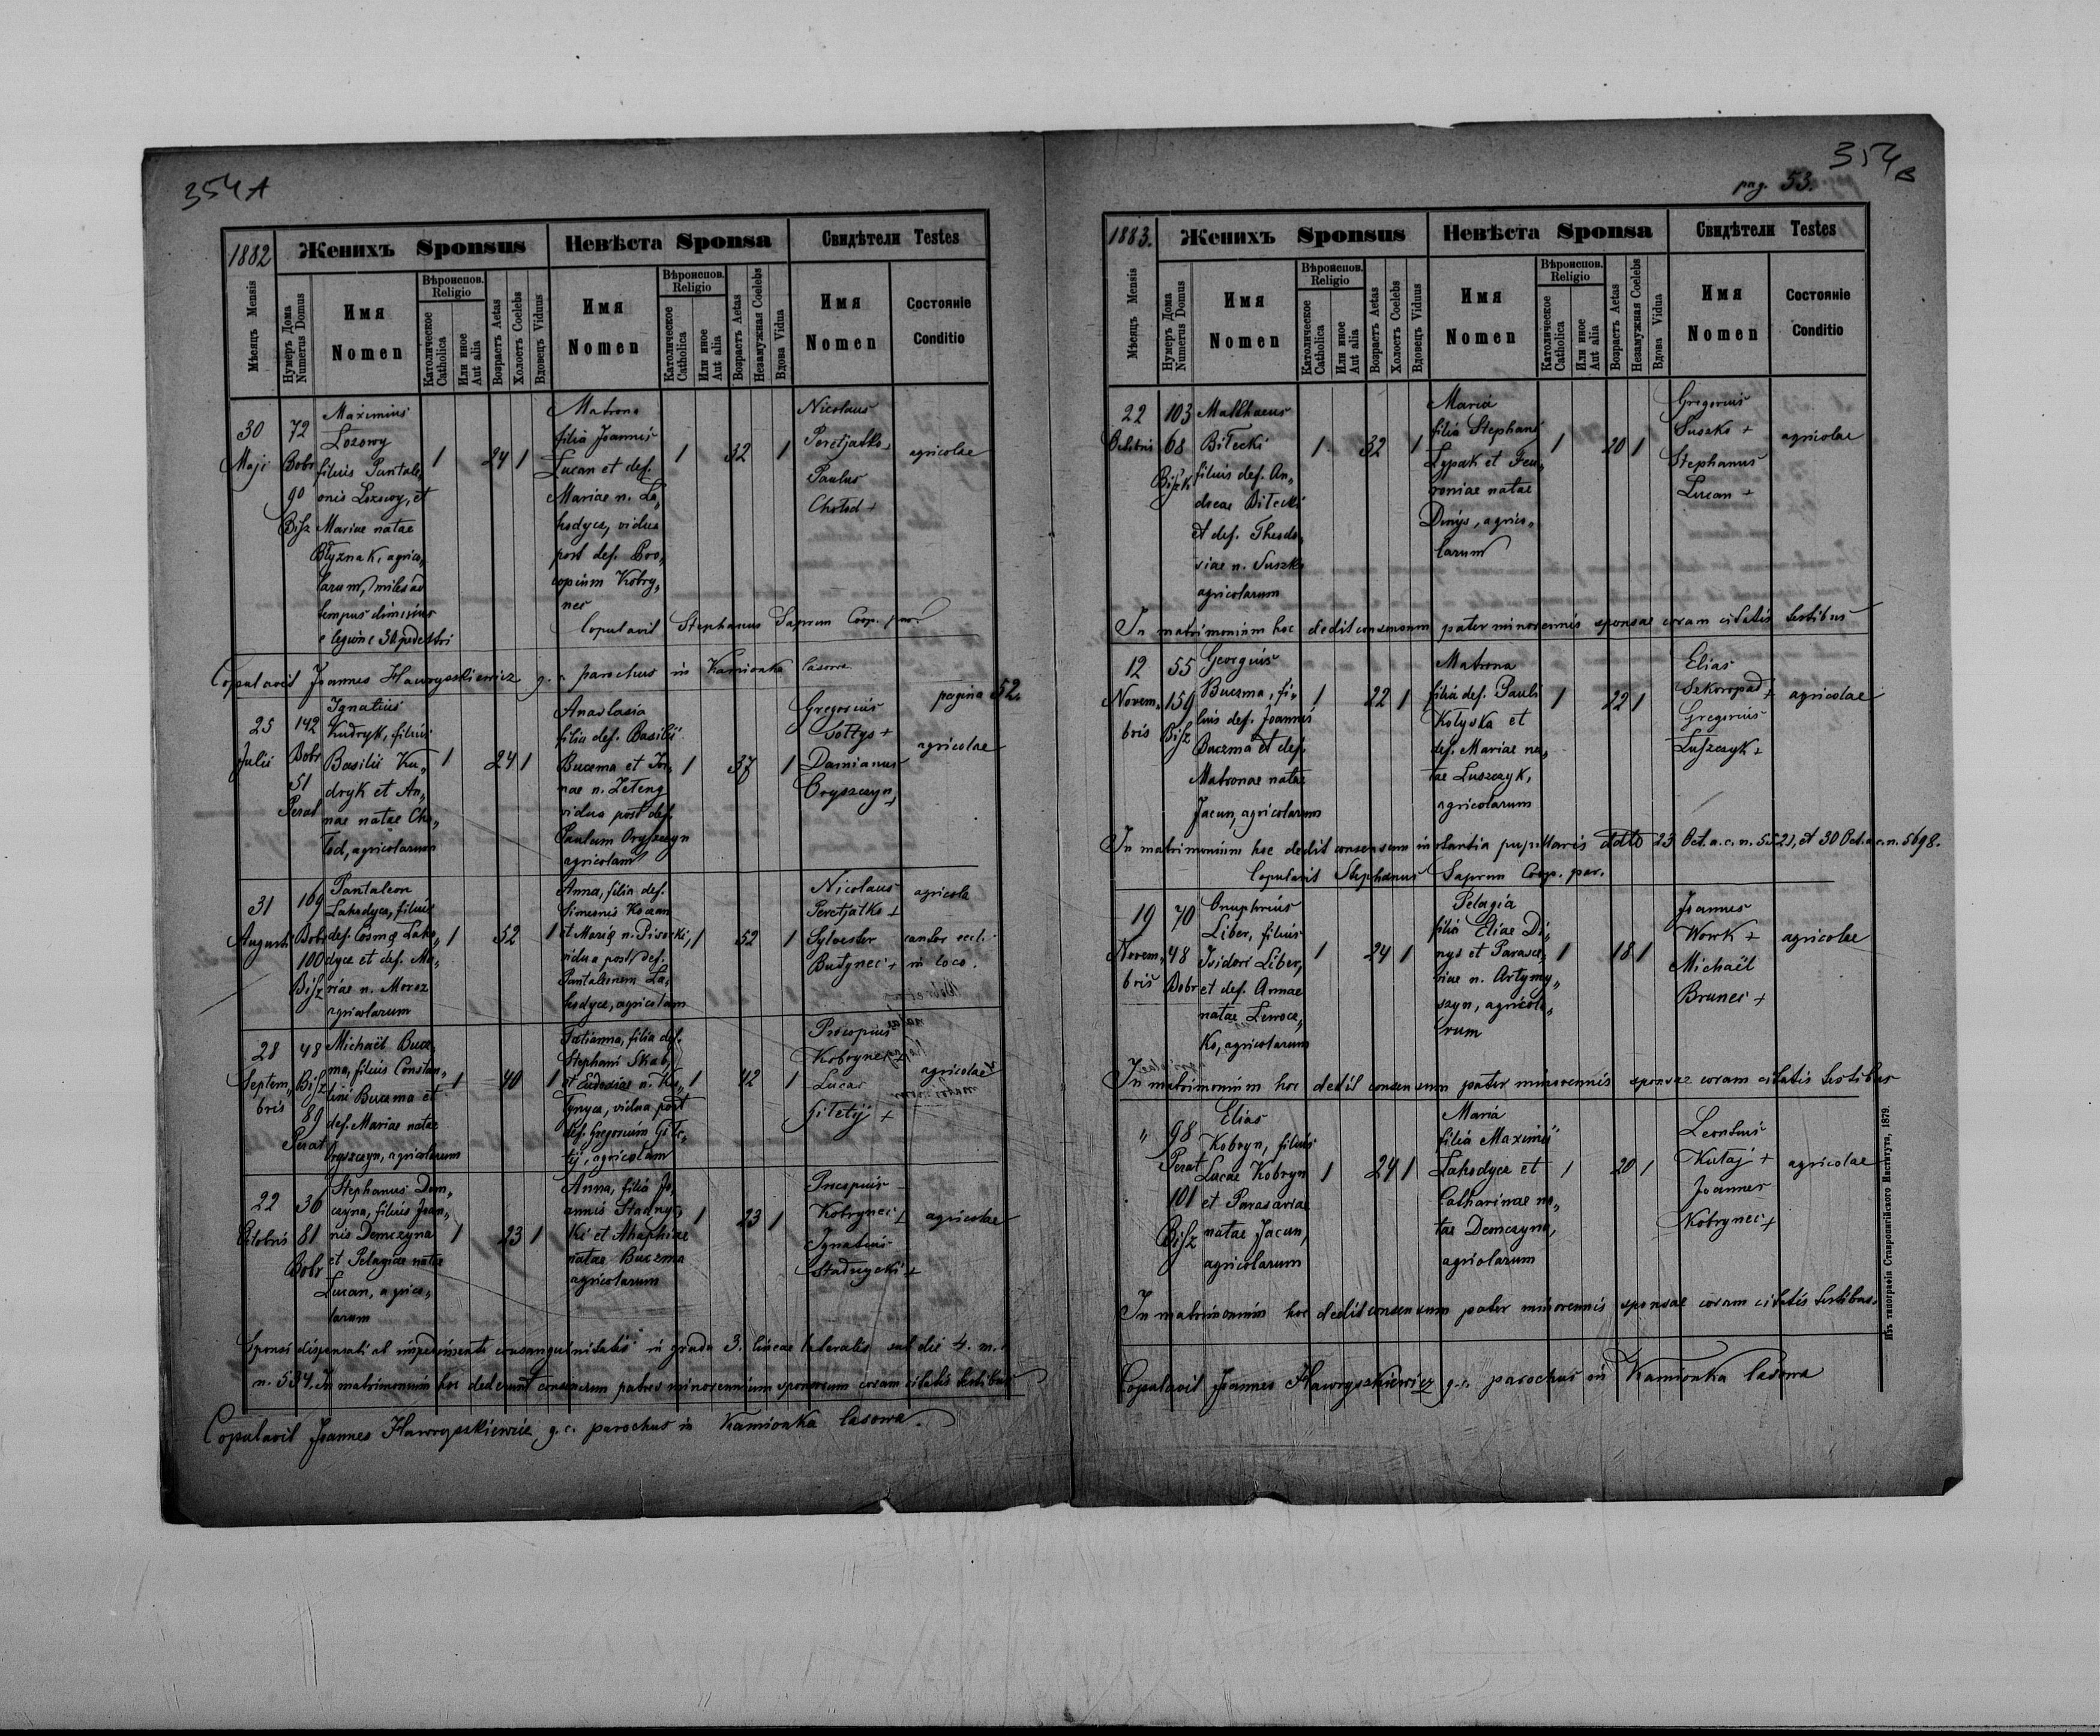 354 A
1882
Женихъ Sponsus
Невѣста Sponsa
Свидѣтели Testes
Мѣсяцъ Mensis
Нумеръ Дома
Numerus Domus
Имя
Nomen
Вѣроиспов.
Religio
Католическое
Catholica
Или иное
Aut alia
Возрастъ Aetas
Холостъ Coelebs
Вдовецъ Viduus
Имя
Nomen
Вѣроиспов.
Religio
Католическое
Catholica
Или иное
Aut alia
Возрастъ Aetas
Незамужная Coelebs
Вдова Vidua
Имя
Nomen
Состояніе
Conditio
30
Maji
72
Bobr
90
Bisz
Maximus
Lozowy
filius Pantale„
onis Lozowy, et
Mariae natae
Błyznak, agrico„
larum, miles ad
tempus dimissus
e legione 30 pedestri
1
24
1
Matrona
filia Joannis
Lucan et def.
Mariae n. La„
hodyca, vidua
post def. Pro„
copium Kobry„
nec
1
32
1
Nicolaus
Peretjatko
Paulus
Chołod +
agricolae
Copulavit Stephanus Saprun Coop. par.
Copulavit Joannes Hawryszkiewicz g. c. parochus in Kamionka lasowa
pagina 52.
25
Julii
142
Bobr
51
Perat
Ignatius
Kudryk, filius
Basilii Ku„
dryk et An„
nae natae Cho„
łod, agricolarum
1
24
1
Anastasia
filia def. Basilii
Buczma et Jo„
nae n. Zeleng
vidua post def.
Paulum Oryszczyn
agricolam
1
37
1
Gregorius
Sołtys +
Damianus
Oryszczyn +
agricolae
31
Augusti
169
Bobr
100
Bisz
Pantaleon
Lahodyca, filius
def. Cosmae Laho„
dyca et def. Ma„
riae n. Moroz
agricolarum
1
52
1
Anna, filia def.
Simeonis Koczan
et Maria n. Pisocki,
vidua post def.
Pantaleonem La„
hodyca, agricolam
1
52
1
Nicolaus
Peretjatko +
Sylvester
Butynec +
agricola
cantor eccl.
in loco.
28
Septem„
bris
48
Bisz
89
Perat
Michaël Bucz„
ma, filius Constan„
tini Buczma et
def. Mariae natae
Oryszczyn, agricolarum
1
40
1
Tatianna, filia def.
Stephani Skab,
et Eudoxiae n. Ko„
tynyca, vidua post
def. Gregorium Gile„
tij, agricolam
1
42
1
Procopius
Kobrynec +
Lucas
Giletij +
agricolae
22
Octobris
36
81
Bobr
Stephanus Dem„
czyna, filius Joan„
nis Demczyna
et Pelagiae natae
Lucan, agrico„
larum
1
23
1
Anna, filia Jo„
annis Stadnyc„
ki et Ahaphiae
natae Buczma
agricolarum
1
23
1
Procopius
Kobrynec +
Ignatius
Stadnycki +
agricolae
Sponsi dispensati ab impedimento consanguinitatis in gradu 3. lineae lateralis sub die 4. m.
n. 534. In matrimonium hoc dederunt consensum patres minorennium sponsorum coram citatis testibus
Copulavit Joannes Hawryszkiewicz, g. c. parochus in Kamionka lasowa.
354 B
pag. 53.
1883.
Женихъ Sponsus
Невѣста Sponsa
Свидѣтели Testes
Мѣсяцъ Mensis
Нумеръ Дома
Numerus Domus
Имя
Nomen
Вѣроиспов.
Religio
Католическое
Catholica
Или иное
Aut alia
Возрастъ Aetas
Холостъ Coelebs
Вдовецъ Viduus
Имя
Nomen
Вѣроиспов.
Religio
Католическое
Catholica
Или иное
Aut alia
Возрастъ Aetas
Незамужная Coelebs
Вдова Vidua
Имя
Nomen
Состояніе
Conditio
22
Octobris
103
68
Bisz
Matthaeus
Biłecki
filius def. An„
dreae Biłecki
et def. Theodo„
siae n. Suszko
agricolarum
1
32
1
Maria
filia Stephani
Lypak et Feu„
roniae natae
Dmys, agrico„
larum
1
20
1
Gregorius
Suszko +
Stephanus
Lucan +
agricolae
In matrimonium hoc dedit consensum pater minorennis sponsae coram citatis testibus
12
Novem„
bris
55
159
Bisz
Georgius
Buczma, fi„
lius def. Joannis
Buczma et def.
Matronae natae
Jacun, agricolarum
1
22
1
Matrona
filia def. Pauli
Kotyska et
def. Mariae na„
tae Luszczyk,
agricolarum
1
22
1
Elias
Szkoropad +
Gregorius
Luszczyk +
agricolae
In matrimonium hoc dedit consensum instantia pupillaris ddto 23 Oct. a. c. n. 5521, et 30 Oct. a. c. n. 5698.
Copulavit Stephanus Saprun Coop. par.
19
Novem„
bris
70
48
Bobr
Onuphrius
Liber, filius
Isidori Liber,
et def. Annae
natae Lewoc„
ko, agricolarum
1
24
1
Pelagia
filia Eliae Di„
nys et Parasce„
viae n. Artymy„
szyn, agricola„
rum
1
18
1
Joannes
Work +
Michaël
Brunec +
agricolae
In matrimonium hoc dedit consensum pater minorennis sponsae coram citatis testibus
„
98
Perat
101
Bisz
Elias
Kobryn, filius
Lucae Kobryn
et Parasceviae
natae Jacun,
agricolarum
1
24
1
Maria
filia Maximi
Lahodyca et
Catharinae na„
tae Demczyna,
agricolarum
1
20
1
Leontius
Kutaj +
Joannes
Kobrynec +
agricolae
In matrimonium hoc dedit consensum pater minorennis sponsae coram citatis testibus.
Copulavit Joannes Hawryszkiewicz g. c. parochus in Kamionka lasowa
Изъ типографіи Ставропигійского Института, 1879.